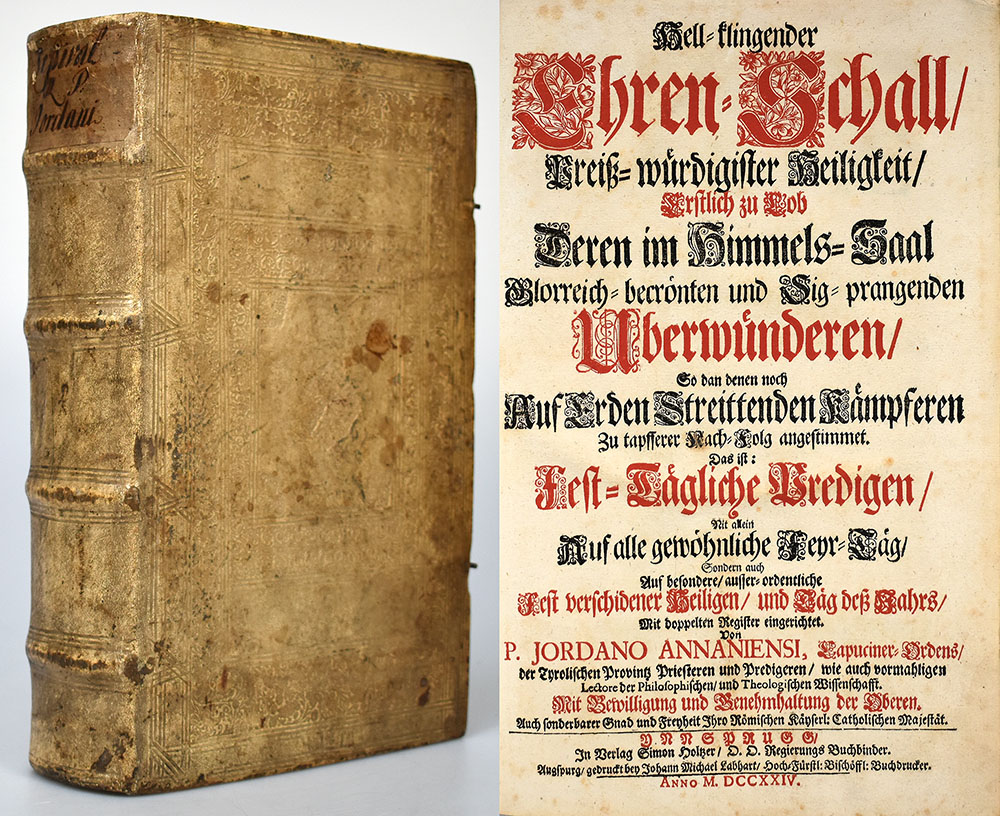 P.
Jordani
Hell-klingender
Ehren-Schall/
Preiß-würdigister Heiligkeit/
Erstlich zu Lob
Deren im Himmels-Saal
Glorreich-becrönten und Sig-prangenden
Uberwünderen/
So dan denen noch
Auf Erden Streittenden Kämpferen
Zu tapfferer Nach-Folg angestimmet.
Das ist:
Fest-Tägliche Predigen/
Nit allein
Auf alle gewöhnliche Feyr-Täg/
Sondern auch
Auf besondere/ ausser-ordentliche
Fest verschidener Heiligen/ und Täg deß Jahrs/
Mit doppelten Register eingerichtet.
Von
P. JORDANO ANNANIENSI, Capuciner-Ordens/
der Tyrolischen Provintz Priesteren und Predigeren/ wie auch vormahligen
Lectore der Philosophischen/ und Theologischen Wissenschafft.
Mit Bewilligung und Genehmhaltung der Oberen.
Auch sonderbarer Gnad und Freyheit Ihro Römischen Käyserl: Catholischen Majestät.
YNNSPRUGG/
In Verlag Simon Holtzer/ O. O. Regierungs Buchbinder.
Augspurg/ gedruckt bey Johann Michael Labhart/ Hoch-Fürstl: Bischöffl: Buchdrucker.
ANNO M. DCCXXIV.